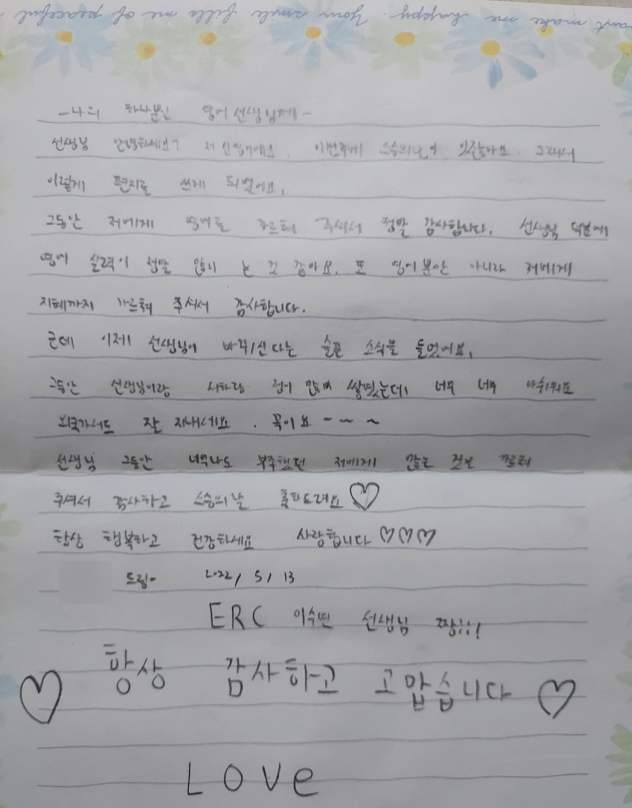 ant make me happy. Your smile fills me of peaceful
-나의 하나뿐인 영어 선생님께-
선생님 안녕하세요? 저 인영이에요. 이번주에 스승의날이 있잖아요. 그래서
이렇게 편지를 쓰게 되었어요.
그동안 저에게 영어를 가르쳐 주셔서 정말 감사합니다. 선생님 덕분에
영어 실력이 정말 많이 는 것 같아요. 또 영어뿐만 아니라 저에게
지혜까지 가르쳐 주셔서 감사합니다.
근데 이제 선생님이 바뀌신다는 슬픈 소식을 들었어요.
그동안 선생님이랑 정이 많이 쌓였는데 너무 너무 아쉬워요
외국가서도 잘 지내세요. 꼭이요~~~
선생님 그동안 너무나도 부족했던 저에게 많은 것을 가르쳐
주셔서 감사하고 스승의날 축하드려요♡
항상 행복하고 건강하세요 사랑합니다♡♡♡
드림- 2022/5/13
ERC 선생님 짱!!!
♡ 항상 감사하고 고맙습니다 ♡
LOVe